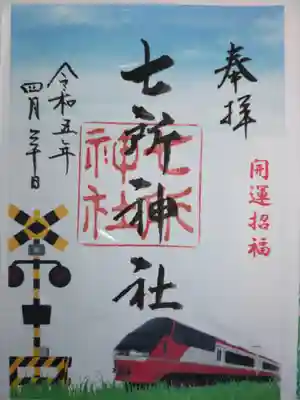 奉拝
開運招福
七所神社
七所神社
令和五年
四月 日